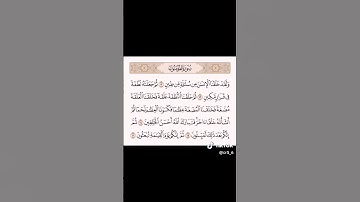 سُورَةُ المُؤْمِنُونَ
وَلَقَدْ خَلَقْنَا الْإِنسَانَ مِن سُلَالَةٍ مِّن طِينٍ ١٢ ثُمَّ جَعَلْنَاهُ نُطْفَةً
فِي قَرَارٍ مَّكِينٍ ١٣ ثُمَّ خَلَقْنَا النُّطْفَةَ عَلَقَةً فَخَلَقْنَا الْعَلَقَةَ
مُضْغَةً فَخَلَقْنَا الْمُضْغَةَ عِظَامًا فَكَسَوْنَا الْعِظَامَ لَحْمًا ثُمَّ
أَنشَأْنَاهُ خَلْقًا آخَرَ فَتَبَارَكَ اللَّهُ أَحْسَنُ الْخَالِقِينَ ١٤ ثُمَّ
إِنَّكُم بَعْدَ ذَٰلِكَ لَمَيِّتُونَ ١٥ ثُمَّ إِنَّكُمْ يَوْمَ الْقِيَامَةِ تُبْعَثُونَ ١٦
TikTok